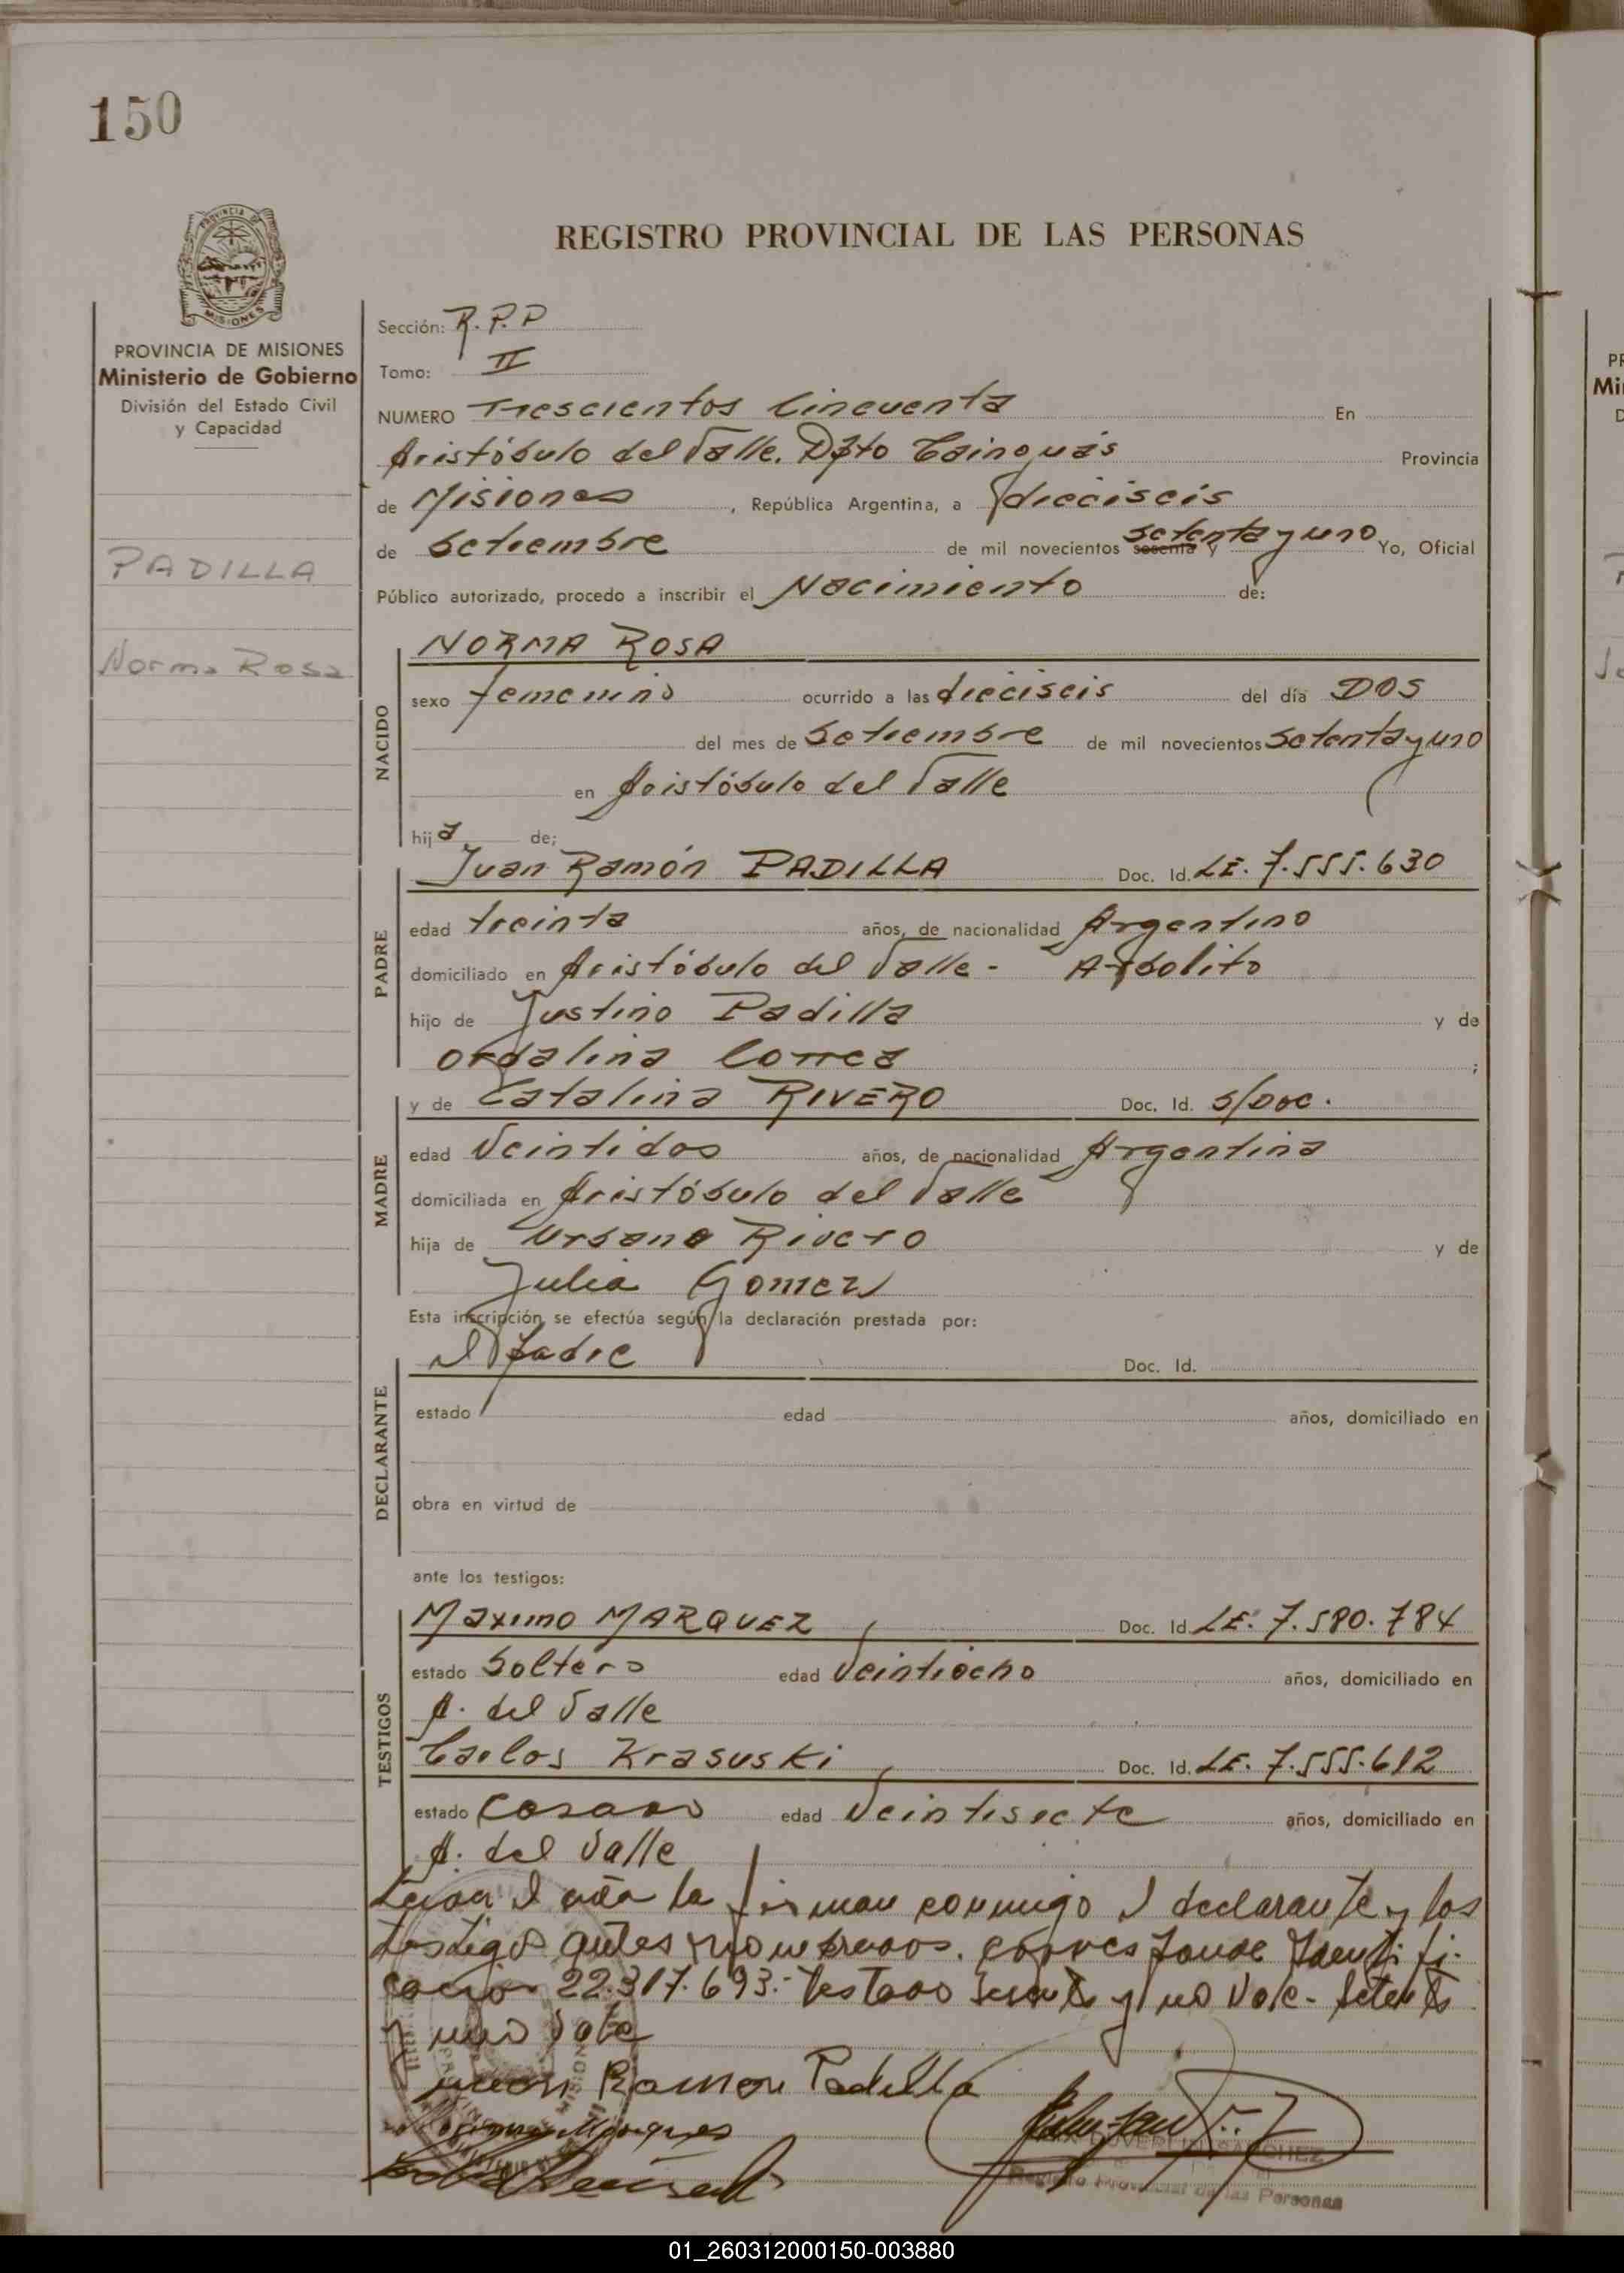 150
REGISTRO PROVINCIAL DE LAS PERSONAS
PROVINCIA DE MISIONES
Ministerio de Gobierno
División del Estado Civil
y Capacidad
PADILLA
Norma Rosa
Sección: R.P.P
Tomo: II
NUMERO Trescientos Cincuenta En
Aristóbulo del Valle. Dpto Cainguás Provincia
de Misiones, República Argentina, a dieciseis
de Setiembre de mil novecientos sesenta y setenta y uno Yo, Oficial
Público autorizado, procedo a inscribir el Nacimiento de:
NACIDO
NORMA ROSA
sexo femenino ocurrido a las dieciseis del día DOS
del mes de Setiembre de mil novecientos setenta y uno
en Aristóbulo del Valle
hija de;
PADRE
Juan Ramón PADILLA Doc. Id. LE. 7.555.630
edad treinta años, de nacionalidad Argentino
domiciliado en Aristóbulo del Valle - Arbolito
hijo de Justino Padilla y de
Ordalina Correa ;
MADRE
y de Catalina RIVERO Doc. Id. s/doc.
edad Veintidos años, de nacionalidad Argentina
domiciliada en Aristóbulo del Valle
hija de Urbano Rivero y de
Julia Gomez
Esta inscripción se efectúa según la declaración prestada por:
DECLARANTE
el Padre Doc. Id.
estado edad años, domiciliado en
obra en virtud de
ante los testigos:
TESTIGOS
Maximo MARQUEZ, Doc. Id. LE. 7.580.784
estado Soltero edad Veintiocho años, domiciliado en
A. del Valle
Carlos Krasuski, Doc. Id. LE. 7.555.612
estado casado edad Veintisiete años, domiciliado en
A. del Valle
Leída el acta la firman conmigo el declarante y los
testigos antes nombrados. corresponde Identifi-
cacion 22.317.693.- Testado sesenta y no Vale. Setenta
y uno Vale
Juan Ramon Padilla
Registro Provincial de las Personas
01_260312000150-003880